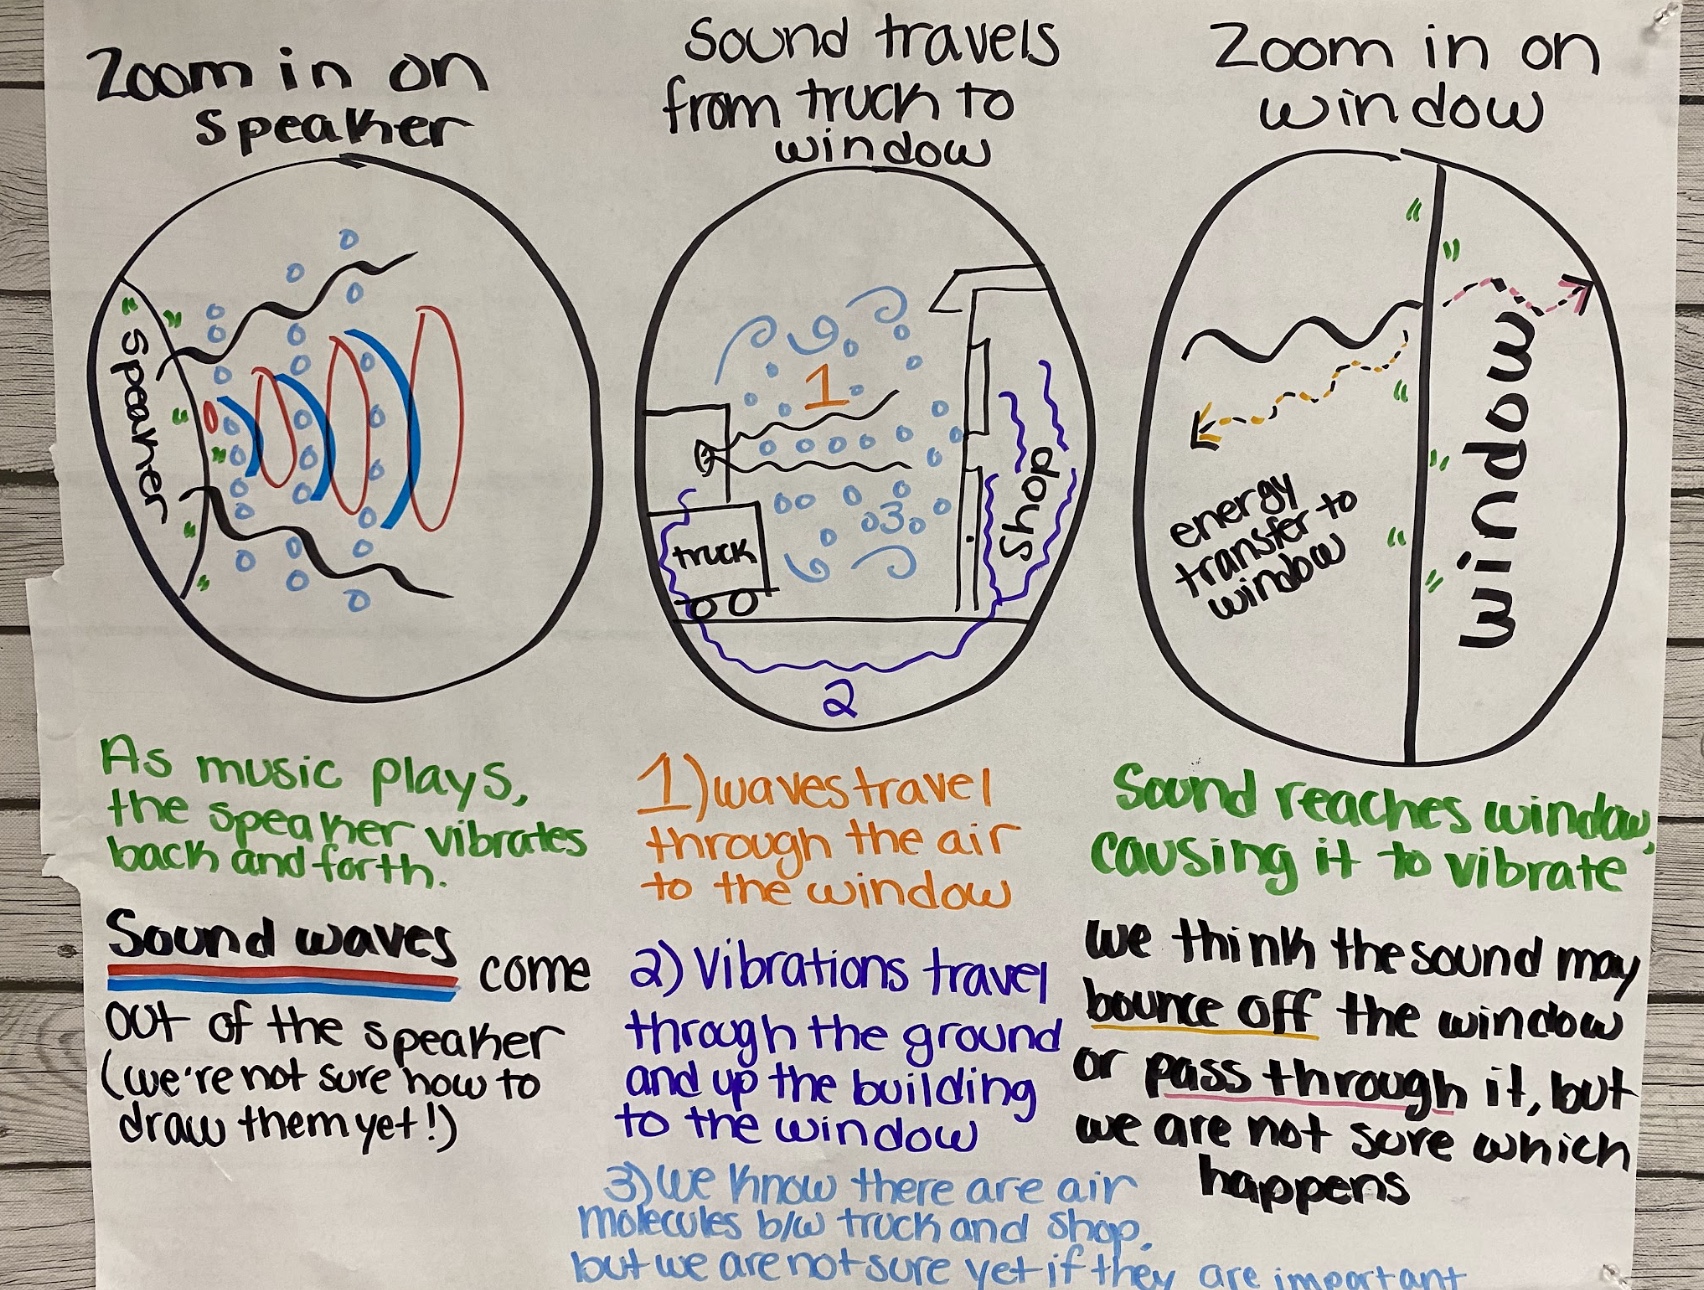 Zoom in on
speaker
Speaker
As music plays,
the speaker vibrates
back and forth.
Sound waves come
out of the speaker
(we're not sure how to
draw them yet!)
Sound travels
from truck to
window
1
3
truck
Shop
2
1) waves travel
through the air
to the window
2) Vibrations travel
through the ground
and up the building
to the window
3) we know there are air
molecules b/w truck and shop,
but we are not sure yet if they are important
Zoom in on
window
window
energy
transfer to
window
Sound reaches window,
causing it to vibrate
we think the sound may
bounce off the window
or pass through it, but
we are not sure which
happens